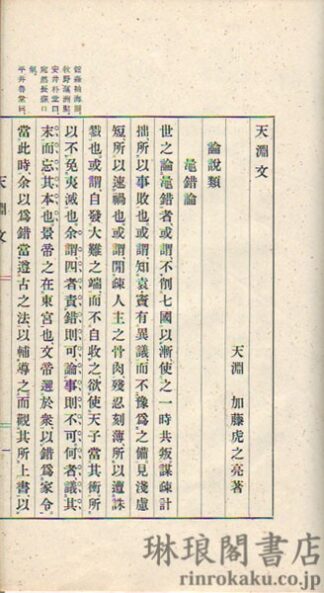 天淵文
天淵 加藤虎之亮著
論說類
鼂錯論
世之論鼂錯者或謂不削七國以漸使之一時共叛謀疎計
拙所以事敗也或謂知袁盎有異議而不豫爲之備見淺慮
短所以速禍也或謂間疎人主之骨肉殘忍刻薄所以遭誅
戮也或謂自發大難之端而不自收之欲使天子當其衝所
以不免夷滅也余謂四者責錯則可論事則不可何者議其
末而忘其本也景帝之在東宮也文帝選於衆以錯爲家令
當此時余以爲錯當遵古之法以輔導之而觀其所上書以
天淵文
琳琅閣書店
rinrokaku.co.jp